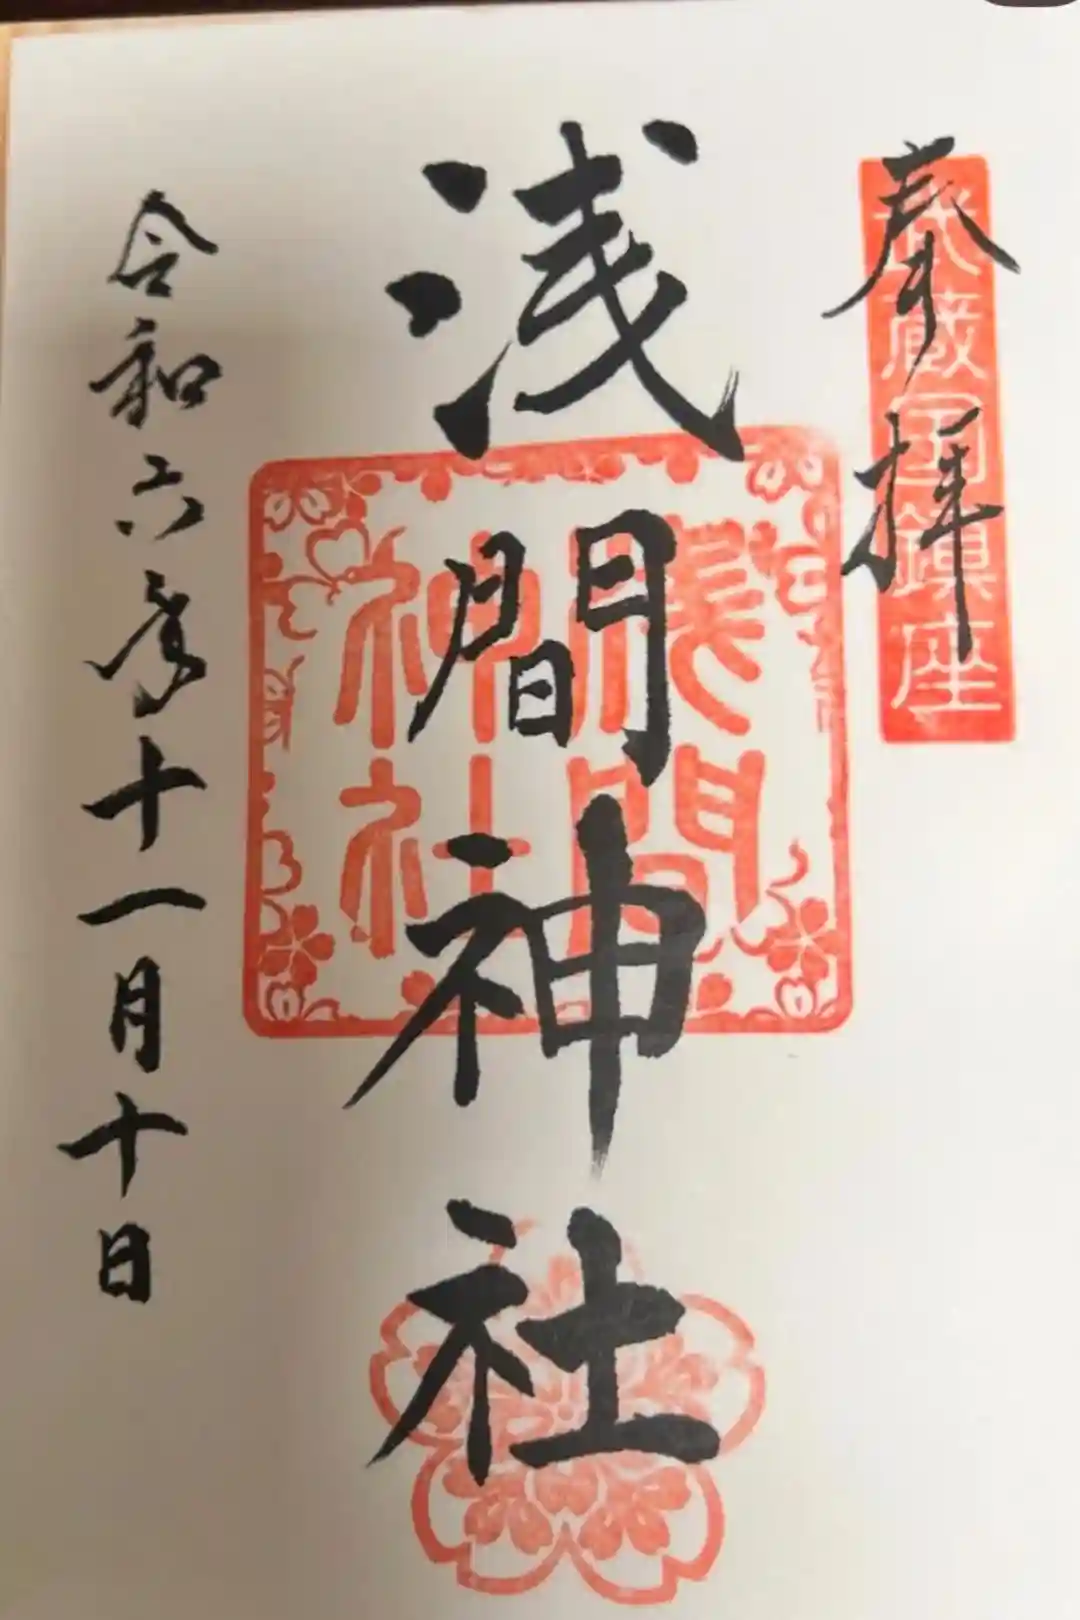 奉拝
武蔵国鎮座
浅間神社
浅間
神社
令和六年十一月十日